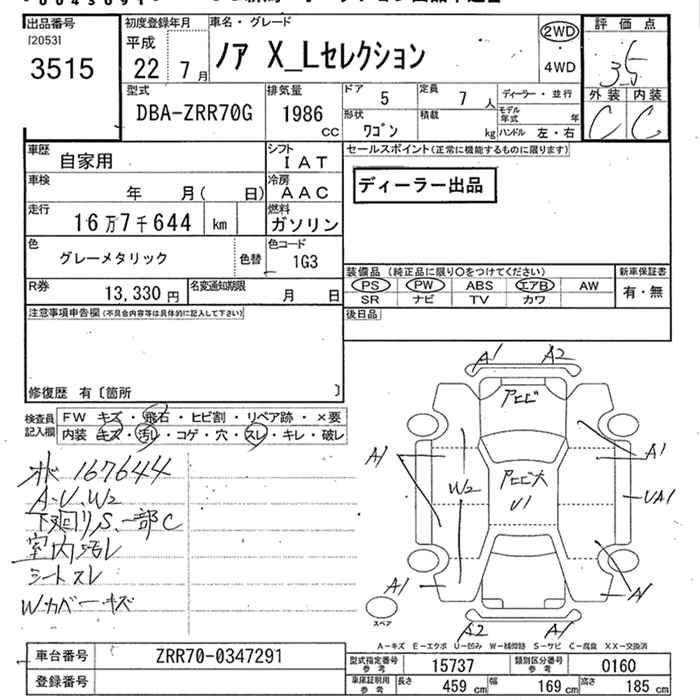 出品番号
[2053]
3515
初度登録年月
平成
22 7月
車名・グレード
ノア X_Lセレクション
2WD
・
4WD
評価点
3.5
外装 内装
C C
型式
DBA-ZRR70G
排気量
1986
CC
ドア
5
定員
7 人
ディーラー・並行
モデル
年式 年
形状
ワゴン
積載
kg
ハンドル 左・右
車歴
自家用
シフト
IAT
セールスポイント(正常に機能するものに限ります)
ディーラー出品
車検
年 月( 日)
冷房
AAC
走行
16万7千644 km
燃料
ガソリン
色
グレーメタリック
色替
色コード
1G3
装備品(純正品に限り○をつけてください)
PS PW ABS エアB AW
SR ナビ TV カワ
新車保証書
有・無
R券
13,330円
名変通知期限
月 日
後日品
注意事項申告欄(不具合内容等は具体的に記入して下さい)
修復歴 有〔箇所 〕
検査員
記入欄
FW キズ・飛石・ヒビ割・リペア跡・×要
内装 キズ・汚レ・コゲ・穴・スレ・キレ・破レ
167644
A・U、W2
下廻りS、一部C
室内汚レ
シートスレ
Wカバーキズ
A1 A2
アヒビ
A1 A1
W2
アヒビ大
U1
UA1
A1 A1
スペア
A2 A1
A-キズ E-エクボ U-凹み W-補修跡 S-サビ C-腐食 XX-交換済
車台番号
ZRR70-0347291
登録番号
型式指定番号
参考
15737
類別区分番号
参考
0160
車庫証明用
参考
長さ
459 cm
幅
169 cm
高さ
185 cm